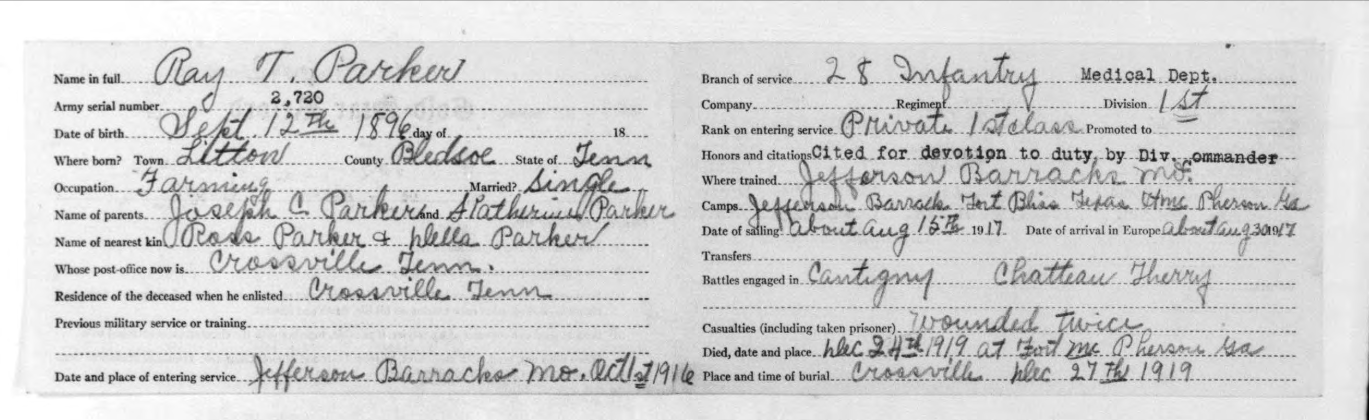 Name in full Ray T. Parker
Army serial number 2,720
Date of birth Sept. 12th 1896 day of 18
Where born? Town Litton County Bledsoe State of Tenn
Occupation Farming Married? Single
Name of parents Joseph C Parker and Parker
Name of nearest kin Ross Parker & Della Parker
Whose post-office now is Crossville Tenn.
Residence of the deceased when he enlisted Crossville Tenn
Previous military service or training
Date and place of entering service Jefferson Barracks Mo. Oct 1st 1916
Branch of service 28 Infantry Medical Dept.
Company Regiment Division 1st
Rank on entering service Private 1st class Promoted to
Honors and citations Cited for devotion to duty, by Div. ommander
Where trained Jefferson Barracks Mo.
Camps Jefferson Barrack Fort Bliss Texas Pherson Ga
Date of sailing about Aug 15th 1917 Date of arrival in Europe about Aug 30 1917
Transfers
Battles engaged in Cantigny Chatteau Therry
Casualties (including taken prisoner) Wounded twice
Died, date and place Dec 24th 1919 at Fort Mc Pherson Ga
Place and time of burial Crossville Dec 27th 1919